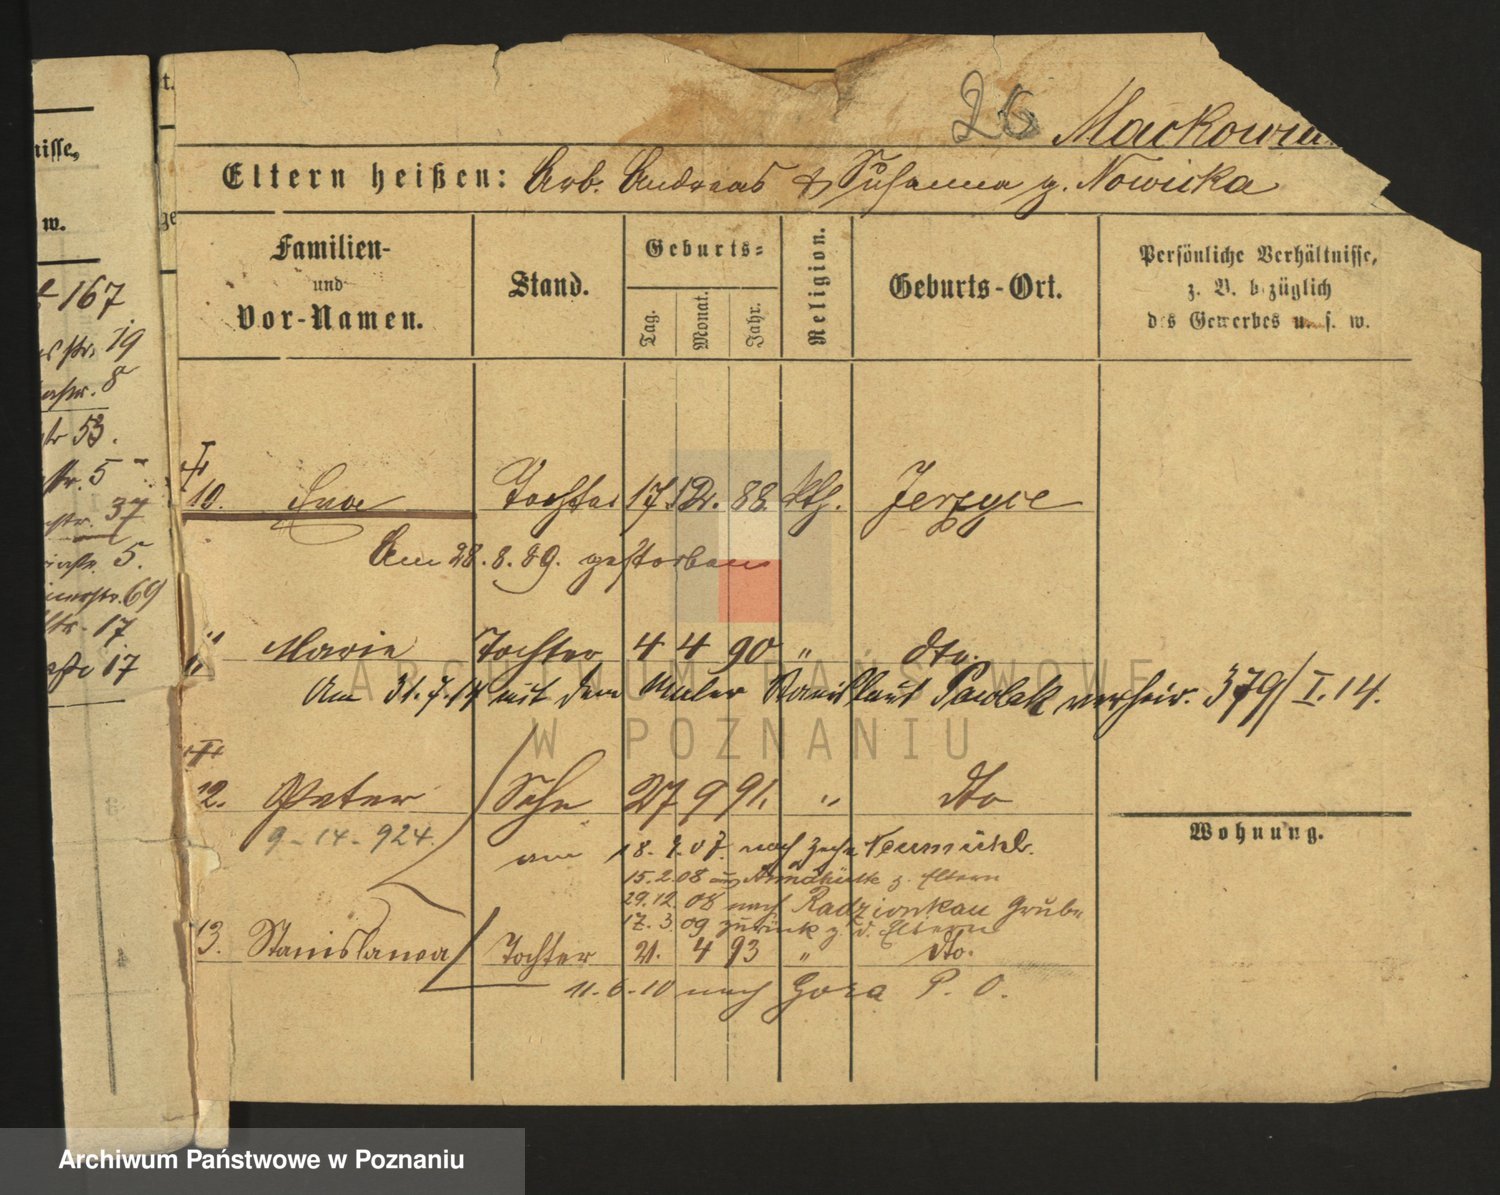 26 Mackowia
Eltern heißen: Arb. Andreas & Susanna g. Nowicka
Familien- und Vor-Namen.
Stand.
Geburts=
Tag.
Monat.
Jahr.
Religion.
Geburts-Ort.
Persönliche Verhältnisse,
z. B. bezüglich
des Gewerbes u. s. w.
nisse,
w.
167
19
8
53.
str. 5
37
5.
69
17
17
t.
ge
I
10. Eva Tochter 17 12. 88. kth. Jerzyce
Am 28. 8. 89. gestorben
" Marie Tochter 4 4 90 " dto.
Am 31.7.14 mit dem Maler Stanislaus Pawlak verheir. 379/I.14.
II
12. Peter Sohn 27 9 91. " dto
9-14-924.
am 18. 9. 07. nach
15.2.08 z. Eltern
29.12.08 nach Radzionkau Grube
17.3.09 zurück z. d. Eltern
13. Stanislawa Tochter 21. 4 93 " dto.
11-6-10 nach Gora P. O.
Wohnung.
ARCHIWUM PAŃSTWOWE
W POZNANIU
Archiwum Państwowe w Poznaniu